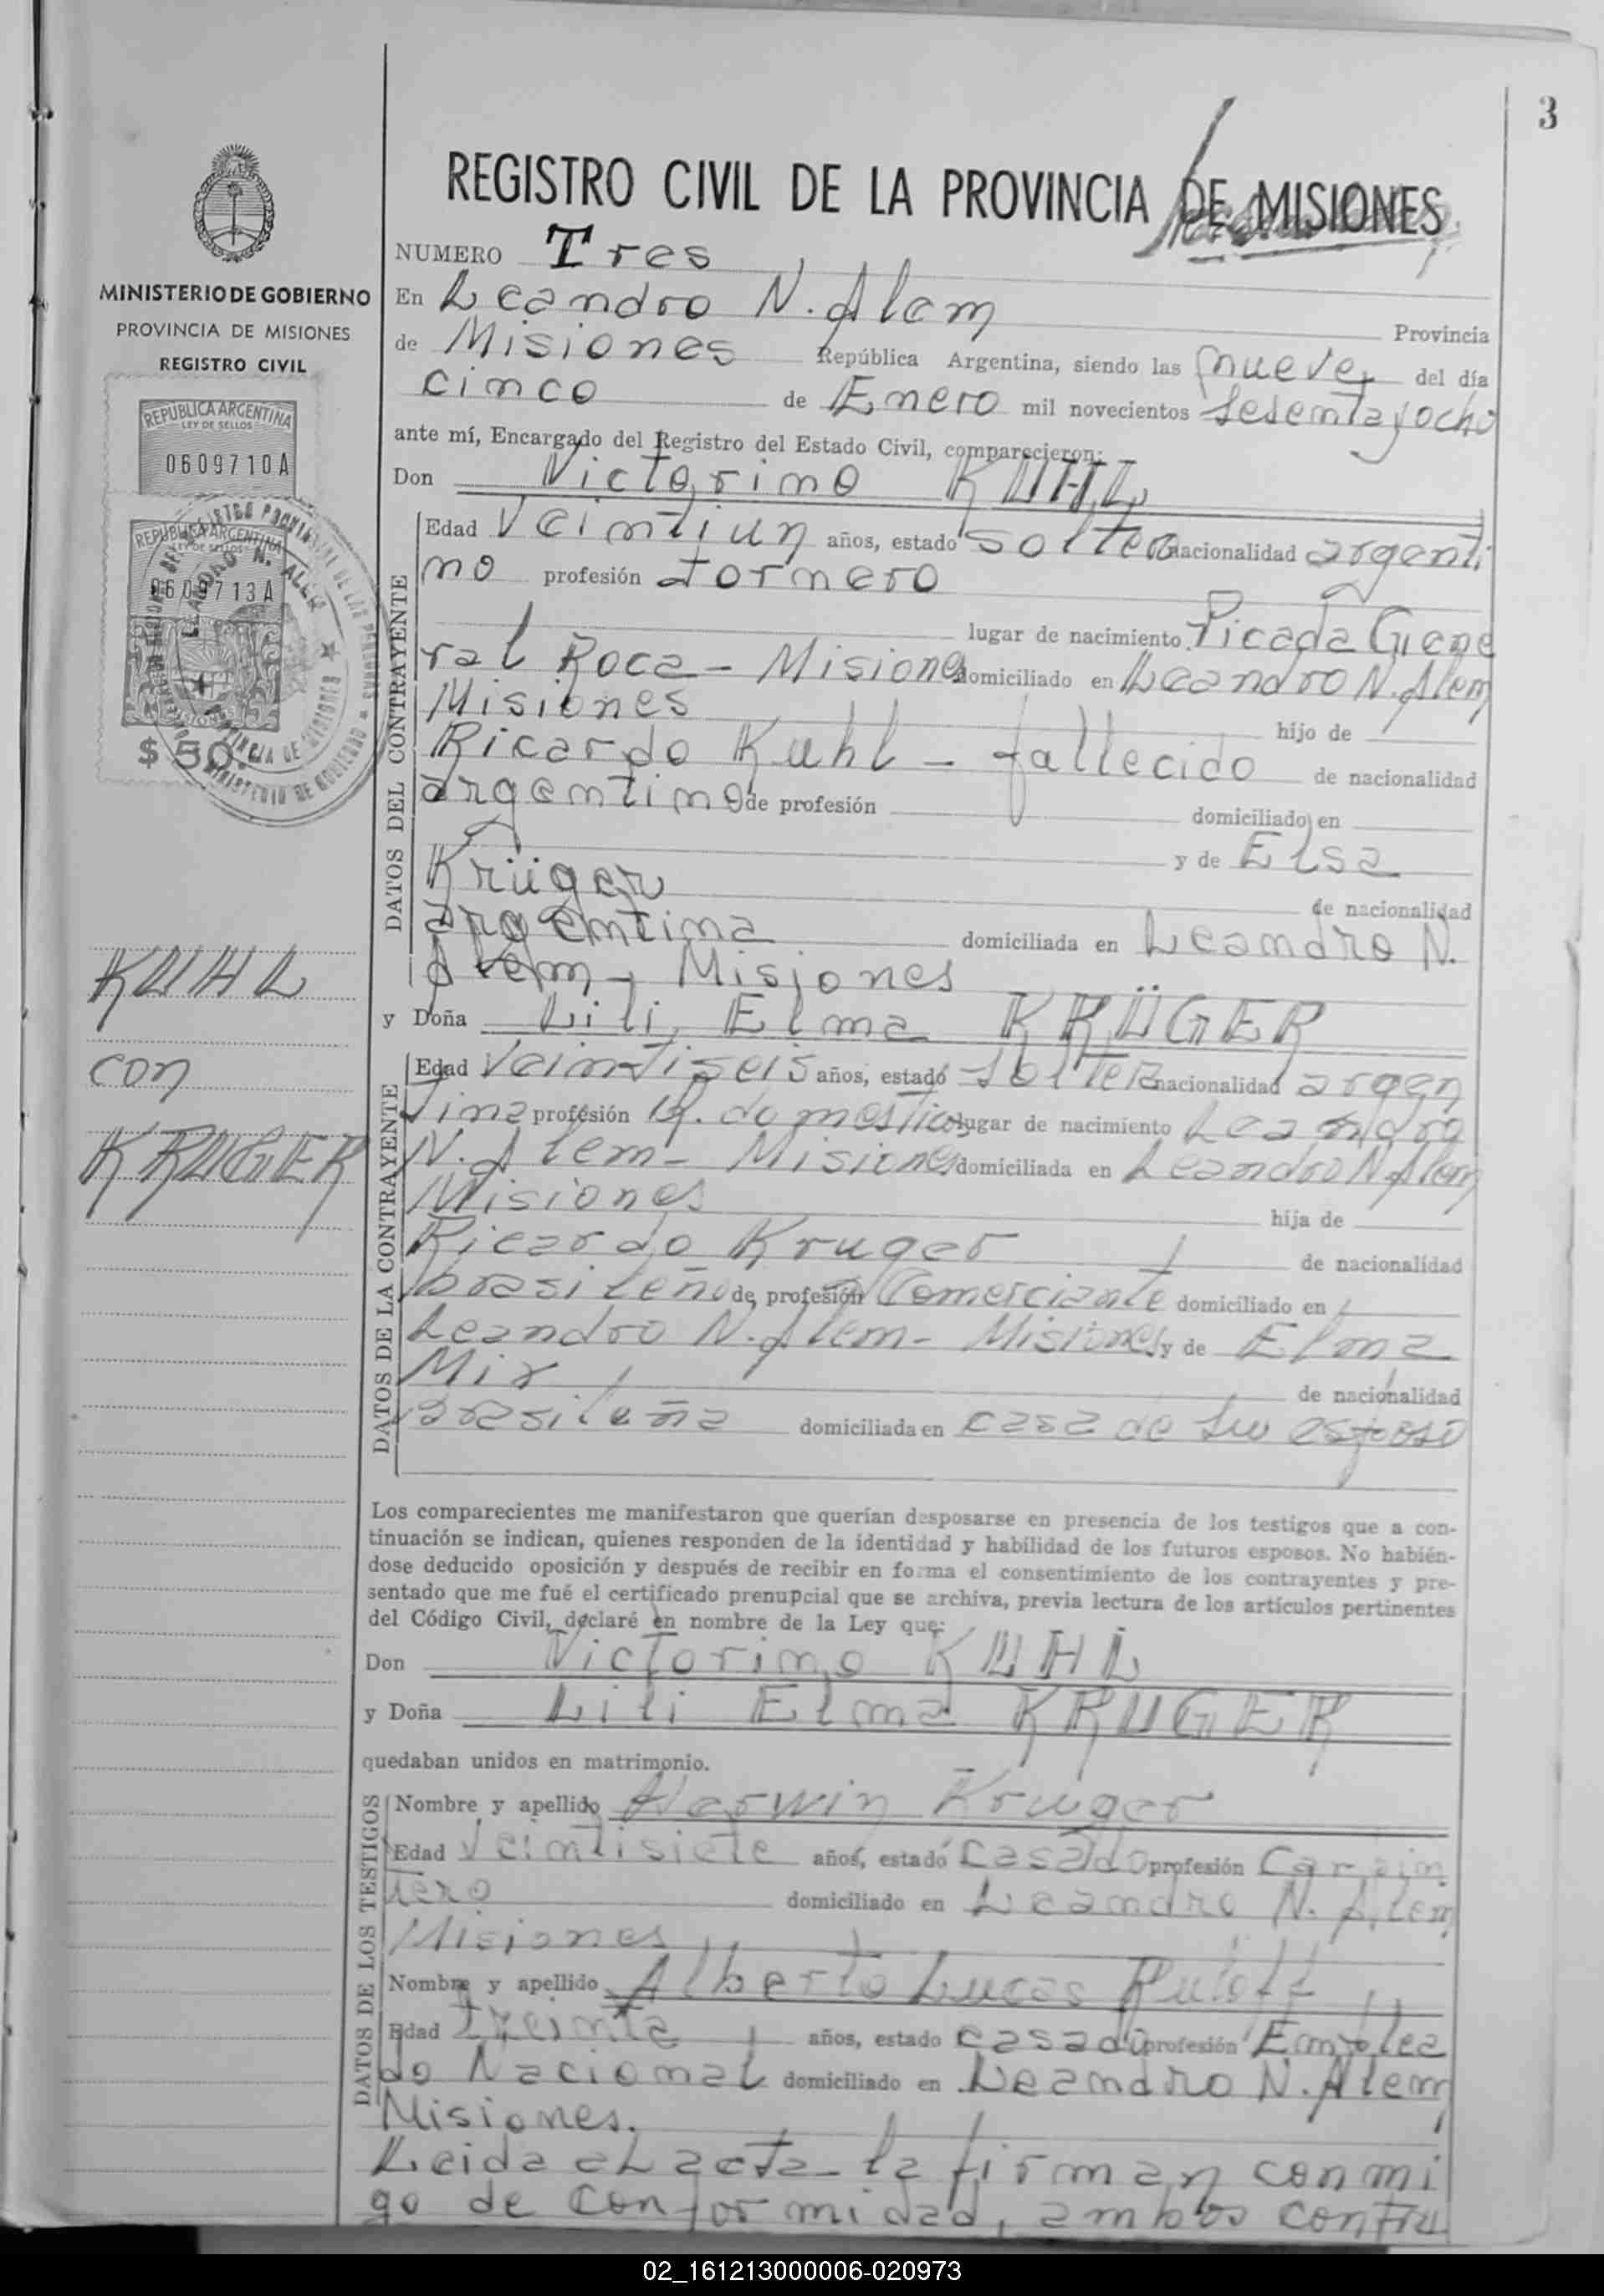 3
REGISTRO CIVIL DE LA PROVINCIA DE MISIONES
NUMERO Tres
MINISTERIO DE GOBIERNO
PROVINCIA DE MISIONES
REGISTRO CIVIL
REPUBLICA ARGENTINA
LEY DE SELLOS
0609710A
REPUBLICA ARGENTINA
LEY DE SELLOS
0609713A
$ 50.-
En Leandro N. Alem Provincia
de Misiones República Argentina, siendo las nueve, del día
cinco de Enero mil novecientos sesenta y ocho
ante mí, Encargado del Registro del Estado Civil, comparecieron:
Don Victorino KUHL
DATOS DEL CONTRAYENTE
Edad Veintiun años, estado soltero nacionalidad argenti
no profesión tornero
lugar de nacimiento Picada Gene
ral Roca - Misiones domiciliado en Leandro N. Alem
Misiones hijo de
Ricardo Kuhl - fallecido de nacionalidad
argentino de profesión domiciliado en
y de Elsa
Krüger de nacionalidad
argentina domiciliada en Leandro N.
Alem - Misiones
KUHL
con
KRUGER
y Doña Lili Elma KRÜGER
DATOS DE LA CONTRAYENTE
Edad Veintiseis años, estado soltera nacionalidad argen
tina profesión Q. domesticos lugar de nacimiento Leandro
N. Alem - Misiones domiciliada en Leandro N. Alem
Misiones hija de
Ricardo Kruger de nacionalidad
brasileño de profesión Comerciante domiciliado en
Leandro N. Alem - Misiones y de Elma
Mix de nacionalidad
Brasileña domiciliada en casa de su esposo
Los comparecientes me manifestaron que querían desposarse en presencia de los testigos que a con-
tinuación se indican, quienes responden de la identidad y habilidad de los futuros esposos. No habién-
dose deducido oposición y después de recibir en forma el consentimiento de los contrayentes y pre-
sentado que me fué el certificado prenupcial que se archiva, previa lectura de los artículos pertinentes
del Código Civil, declaré en nombre de la Ley que:
Don Victorino KUHL
y Doña Lili Elma KRUGER
quedaban unidos en matrimonio.
DATOS DE LOS TESTIGOS
Nombre y apellido Herwin Kruger
Edad Veintisiete años, estado casado profesión Carpin
tero domiciliado en Leandro N. Alem
Misiones
Nombre y apellido Alberto Lucas Ruloff
Edad treinta años, estado casado profesión Emplea
do Nacional domiciliado en Leandro N. Alem
Misiones.
Leida el acta la firman conmi
go de conformidad, ambos contra
02_161213000006-020973